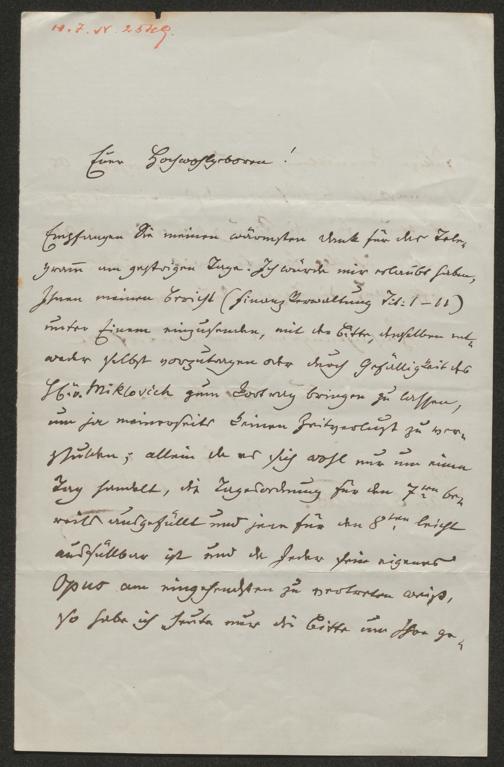 Euer Hochwohlgeboren!
Empfangen Sie meinen wärmsten Dank für das Tele-
gramm am gestrigen Tage. Ich würde mir erlaubt haben,
Ihnen meinen Bericht (Finanzverwaltung Tit: 1-11)
unter Einem einzusenden, mit der Bitte, denselben ent-
weder selbst vorzutragen oder durch Gefälligkeit des
H. v. Miklovich zum Vortrag bringen zu lassen,
um ja meinerseits keinen Zeitverlust zu ver-
schulden; allein da es sich wohl nur um einen
Tag handelt, die Tagesordnung für den 7ten be-
reits ausgefüllt und jene für den 8ten leicht
ausfüllbar ist und da Jeder sein eigenes
Opus am eingehendsten zu vertreten weiß,
so habe ich heute nur die Bitte um Ihre ge-